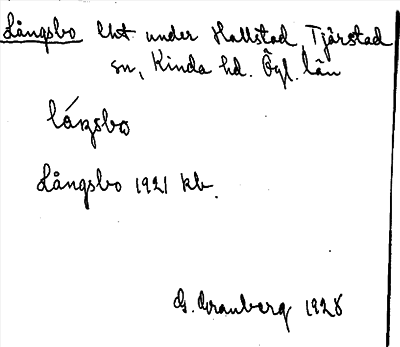 Långsbo lht under Hallstad, Tjärstad
sn, Kinda hd. Ögl. län
låŋsbo
Långsbo 1921 kb.
G. Granberg 1928